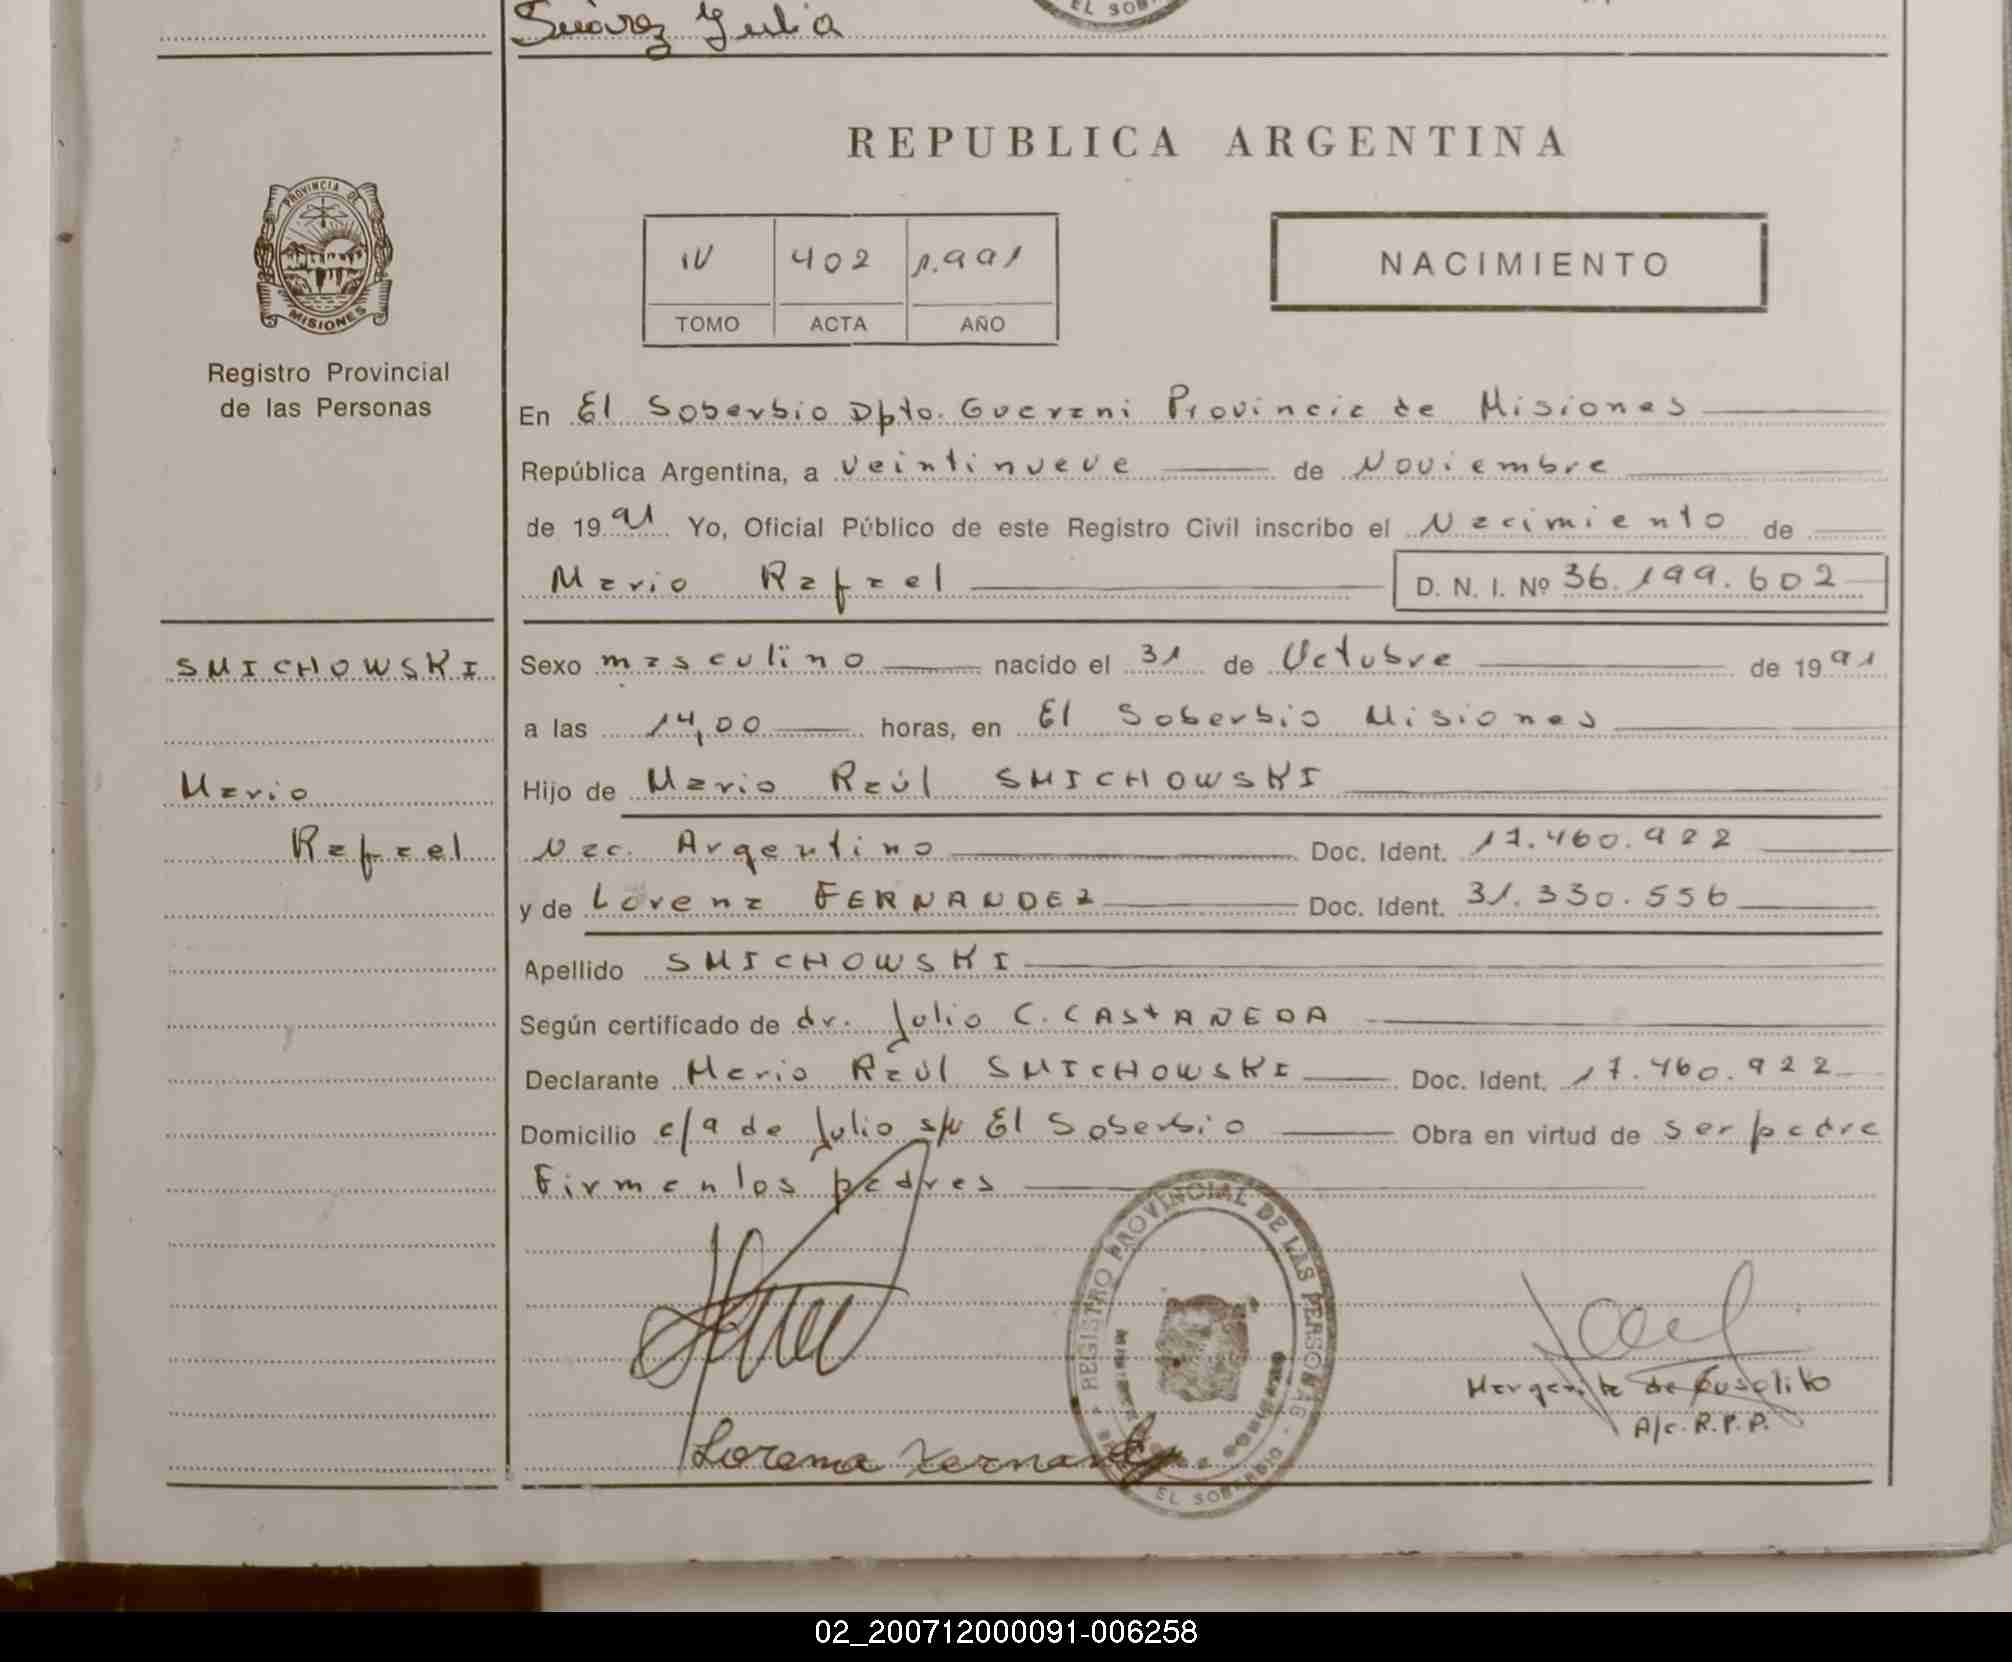 Suárez Julia
EL SOB
REPUBLICA ARGENTINA
PROVINCIA DE
MISIONES
Registro Provincial
de las Personas
IV 402 1.991
TOMO ACTA AÑO
NACIMIENTO
En El Soberbio Dpto. Guarani Provincia de Misiones
República Argentina, a veintinueve de Noviembre
de 1991 Yo, Oficial Público de este Registro Civil inscribo el Nacimiento de
Mario Rafael D. N. I. Nº 36.199.602
SMICHOWSKI
Mario
Rafael
Sexo masculino nacido el 31 de Octubre de 1991
a las 14,00 horas, en El Soberbio Misiones
Hijo de Mario Raúl SMICHOWSKI
Nac. Argentino Doc. Ident. 17.460.922
y de Lorena FERNANDEZ Doc. Ident. 31.330.556
Apellido SMICHOWSKI
Según certificado de dr. Julio C. CASTANEDA
Declarante Mario Raúl SMICHOWSKI Doc. Ident. 17.460.922
Domicilio c/9 de Julio s/n El Soberbio Obra en virtud de ser padre
Firman los padres
REGISTRO PROVINCIAL DE LAS PERSONAS
EL SOBERBIO
Lorena Fernandez
Margarita de Cusolito
A/c. R.P.P.
02_200712000091-006258